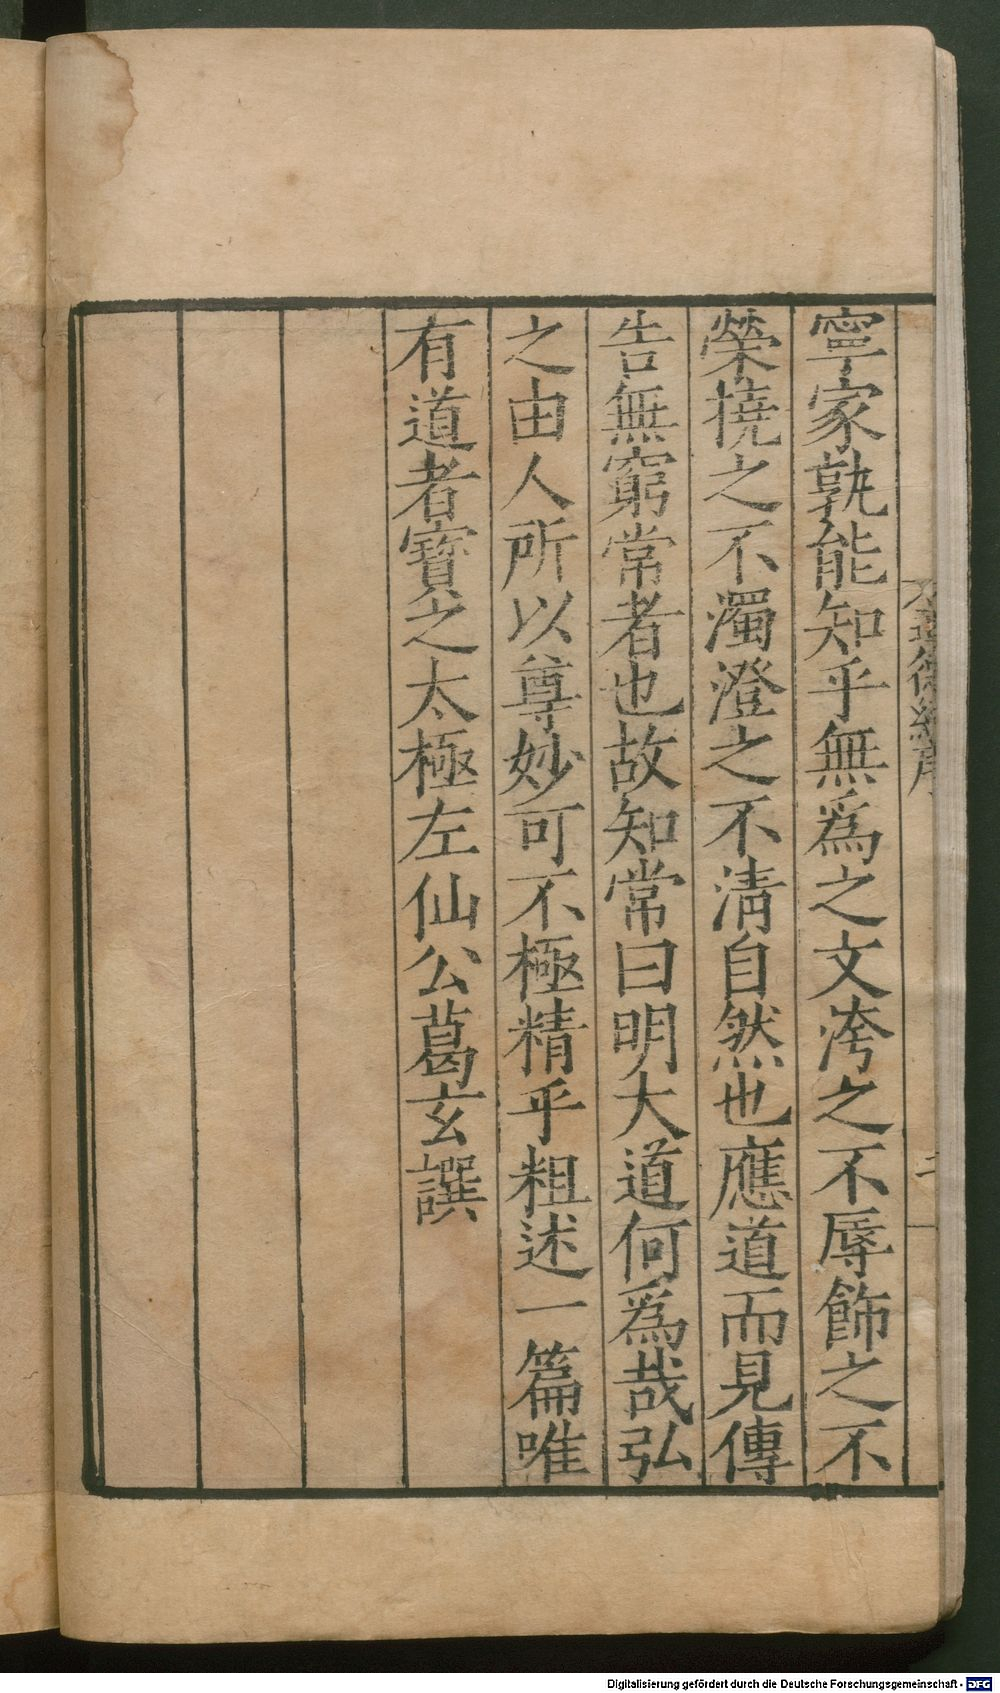 寧家孰能知乎無爲之文洿之不辱飾之不
榮撓之不濁澄之不清自然也應道而見傳
告無窮常者也故知常曰明大道何爲哉弘
之由人所以尊妙可不極精乎粗述一篇唯
有道者寶之太極左仙公葛玄譔
道德經序
二
Digitalisierung gefördert durch die Deutsche Forschungsgemeinschaft - DFG